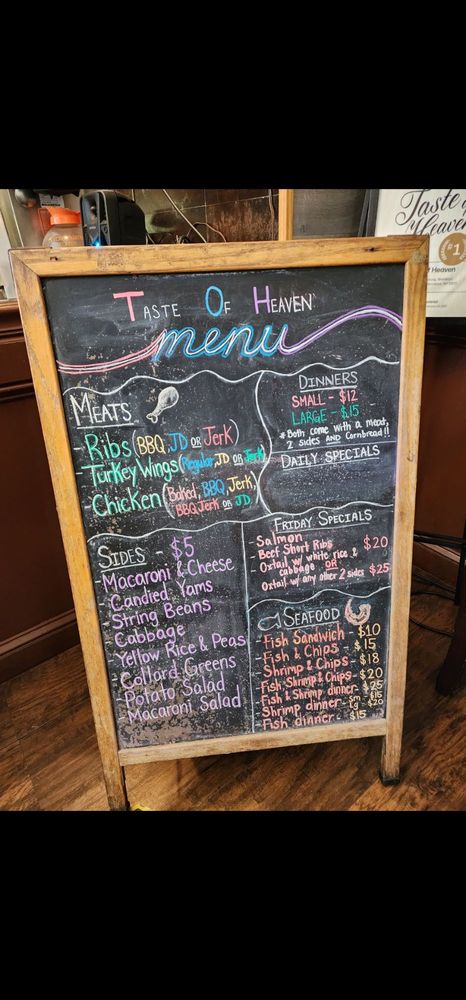 Taste of
Heaven
#1
of Heaven
TASTE OF HEAVEN
menu
MEATS
- Ribs (BBQ, JD OR Jerk)
- Turkey Wings (Regular, JD OR Jerk)
- Chicken (Baked, BBQ, Jerk,
BBQ Jerk OR JD
DINNERS
SMALL - $12
LARGE - $15
* Both come with a meat,
2 sides AND Cornbread!!
DAILY SPECIALS
FRIDAY SPECIALS
- Salmon
- Beef Short Ribs $20
- Oxtail w/ white rice &
cabbage OR
Oxtail w/ any other 2 sides $25
SIDES - $5
- Macaroni & Cheese
- Candied Yams
- String Beans
- Cabbage
- Yellow Rice & Peas
- Collard Greens
- Potato Salad
- Macaroni Salad
SEAFOOD
- Fish Sandwich - $10
- Fish & Chips - $15
- Shrimp & Chips - $18
- Fish Shrimp & Chips - $20
- Fish & Shrimp dinner - $25
- Shrimp dinner - Sm $15
Lg - $20
- Fish dinner - $15